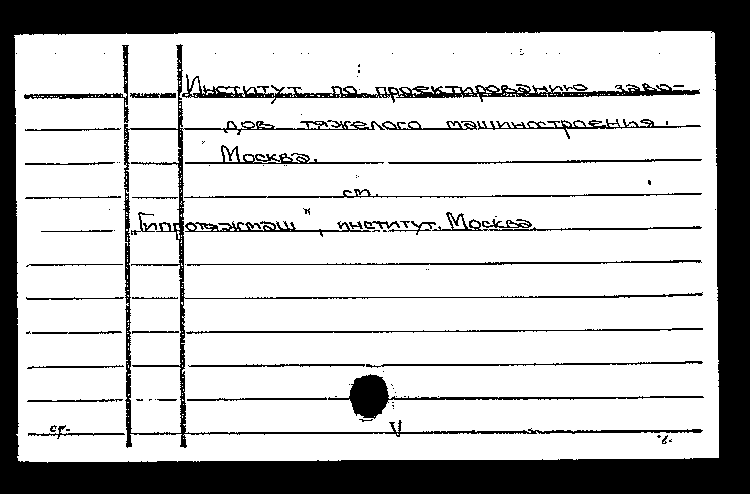 Институт по проектированию заво-
дов тяжелого машиностроения.
Москва.
см.
„Гипротяжмаш", институт. Москва.